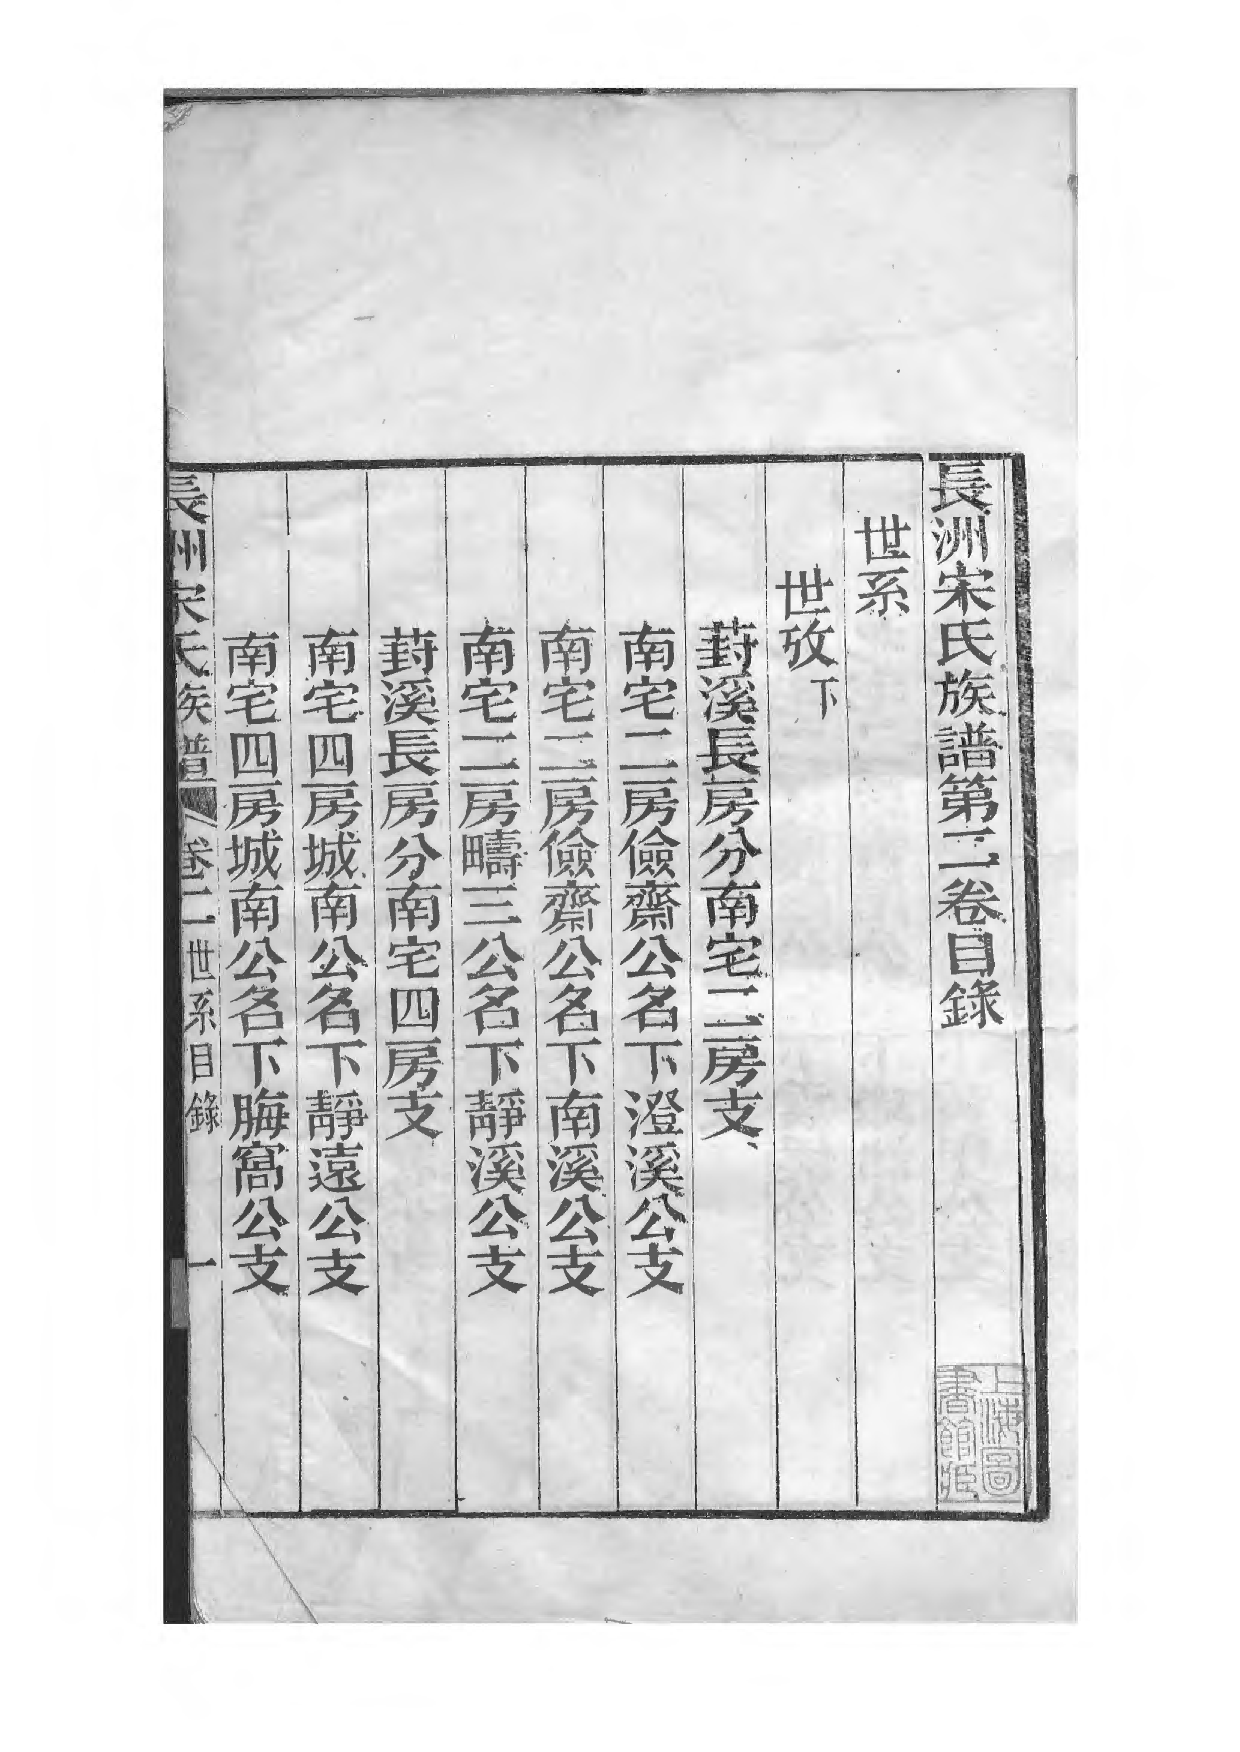 長洲宋氏族譜第二卷目錄
世系
世攷下
葑溪長房分南宅二房支
南宅二房儉齋公名下澄溪公支
南宅二房儉齋公名下南溪公支
南宅二房疇三公名下靜溪公支
葑溪長房分南宅四房支
南宅四房城南公名下靜遠公支
南宅四房城南公名下䏬窩公支
長洲宋氏族譜 卷二 世系目錄 一
上海圖書館藏